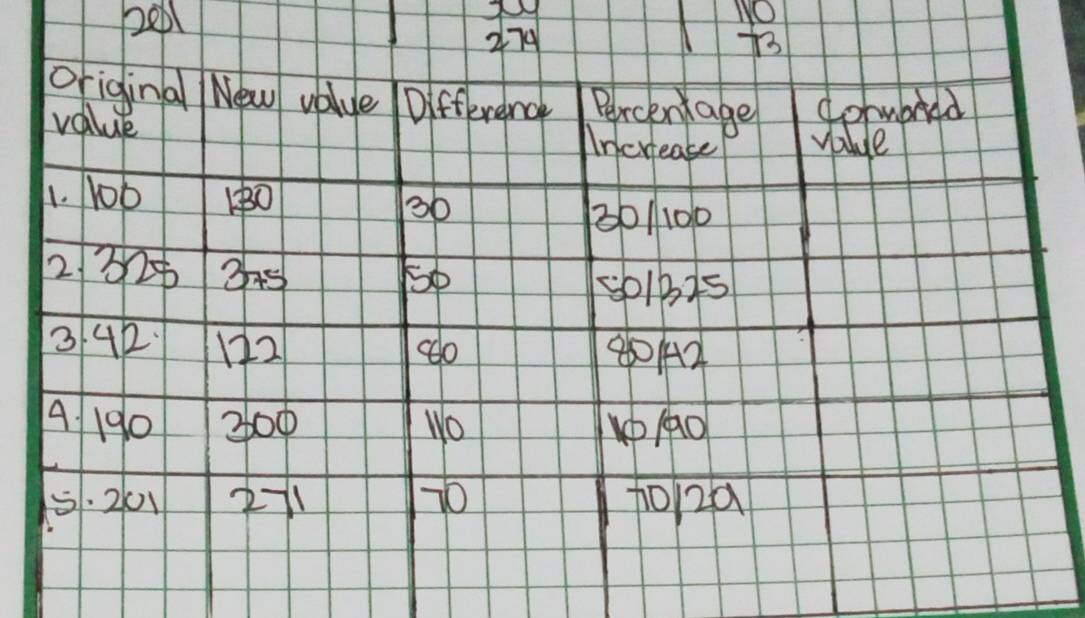 201 274 73
110
Original New value Difference Percentage Converted
value Increase value
1. 100 130 30 30/100
2. 325 375 50 50/325
3. 42 122 80 80/42
4. 190 300 110 110/90
5. 201 271 70 70/201